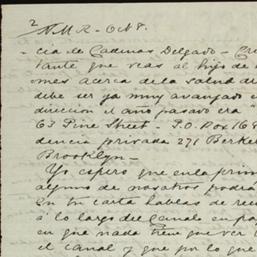 2
N.M.R. - Oct 8.
- cia de Cadenas Delgado -
tante que veas al hijo de
omes acerca de la salud de
debe ser ya muy avanzado
dirección el año pasado era "
63 Pine Street - P.O. Box 168
dencia privada 271 Berkel
Brooklyn -
Yo espero que en la prim
alguno de nosotros podrá
En tu carta hablas de
á lo largo del canal en
en que nada tiene que ver
el canal y que por lo que